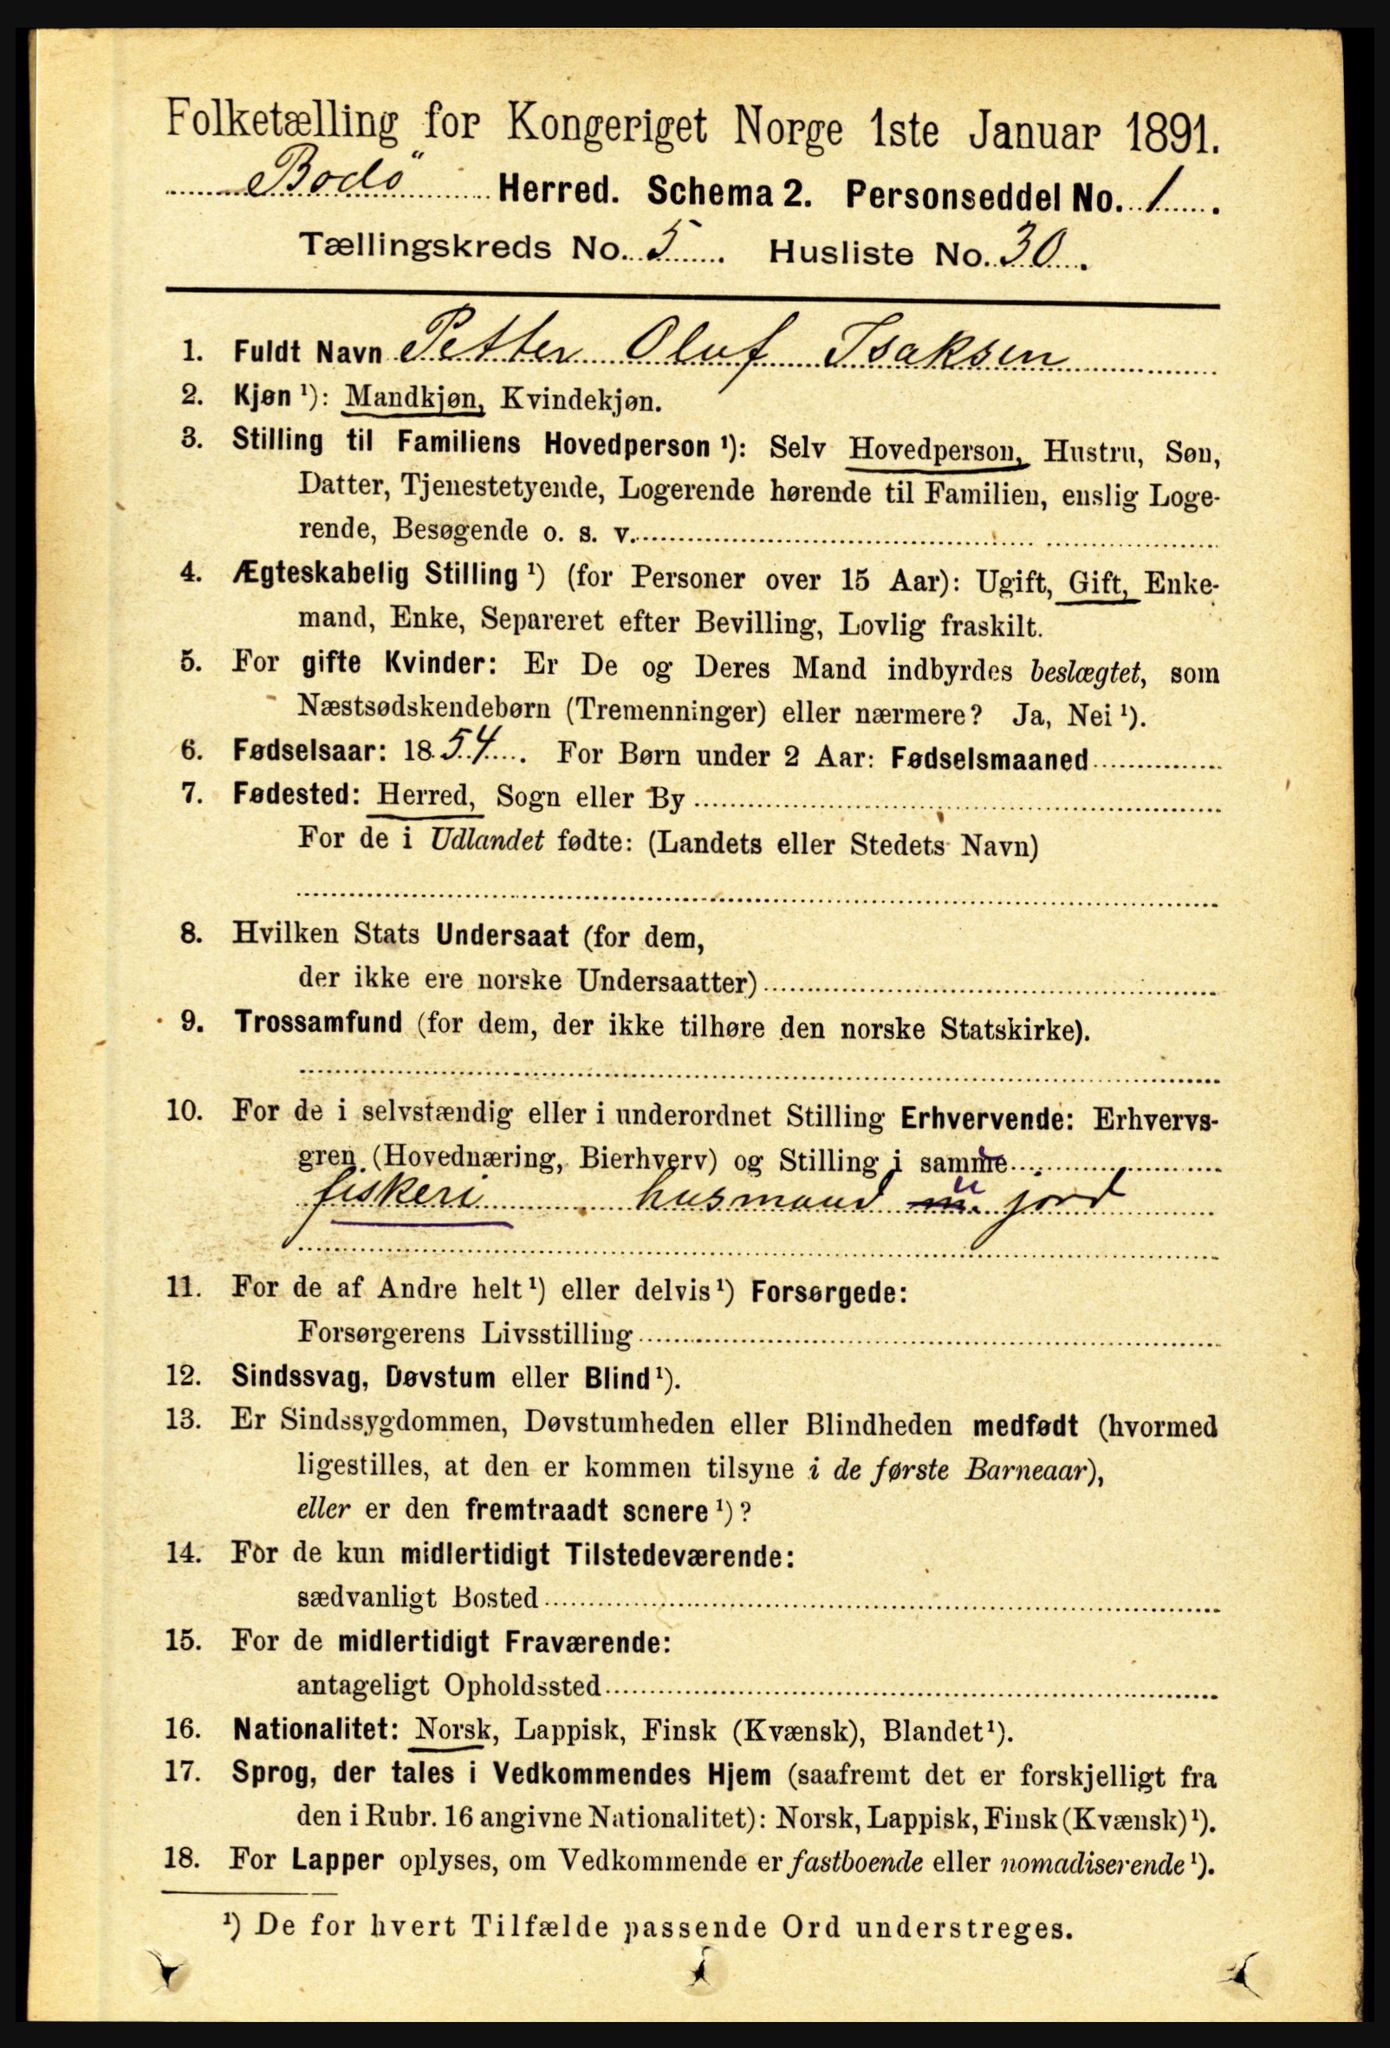 Folketælling for Kongeriget Norge 1ste Januar 1891.
Bodö Herred. Schema 2. Personseddel No. 1.
Tællingskreds No. 5. Husliste No. 30.
1. Fuldt Navn Petter Oluf Isaksen
2. Kjøn ¹): Mandkjøn, Kvindekjøn.
3. Stilling til Familiens Hovedperson ¹): Selv Hovedperson, Hustru, Søn,
Datter, Tjenestetyende, Logerende hørende til Familien, enslig Loge-
rende, Besøgende o. s. v.
4. Ægteskabelig Stilling ¹) (for Personer over 15 Aar): Ugift, Gift, Enke-
mand, Enke, Separeret efter Bevilling, Lovlig fraskilt.
5. For gifte Kvinder: Er De og Deres Mand indbyrdes beslægtet, som
Næstsødskendebørn (Tremenninger) eller nærmere? Ja, Nei ¹).
6. Fødselsaar: 1854. For Børn under 2 Aar: Fødselsmaaned
7. Fødested: Herred, Sogn eller By
For de i Udlandet fødte: (Landets eller Stedets Navn)
8. Hvilken Stats Undersaat (for dem,
der ikke ere norske Undersaatter)
9. Trossamfund (for dem, der ikke tilhøre den norske Statskirke).
10. For de i selvstændig eller i underordnet Stilling Erhvervende: Erhvervs-
gren (Hovednæring, Bierhverv) og Stilling i samme
fiskeri husmand m. u jord
11. For de af Andre helt ¹) eller delvis ¹) Forsørgede:
Forsørgerens Livsstilling
12. Sindssvag, Døvstum eller Blind ¹).
13. Er Sindssygdommen, Døvstumheden eller Blindheden medfødt (hvormed
ligestilles, at den er kommen tilsyne i de første Barneaar),
eller er den fremtraadt senere ¹)?
14. For de kun midlertidigt Tilstedeværende:
sædvanligt Bosted
15. For de midlertidigt Fraværende:
antageligt Opholdssted
16. Nationalitet: Norsk, Lappisk, Finsk (Kvænsk), Blandet ¹).
17. Sprog, der tales i Vedkommendes Hjem (saafremt det er forskjelligt fra
den i Rubr. 16 angivne Nationalitet): Norsk, Lappisk, Finsk (Kvænsk) ¹).
18. For Lapper oplyses, om Vedkommende er fastboende eller nomadiserende ¹).
¹) De for hvert Tilfælde passende Ord understreges.